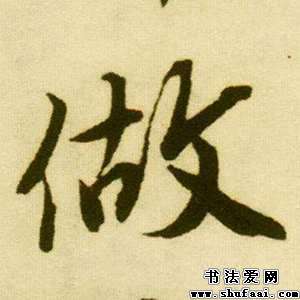 做
书法爱网
www.shufaai.com